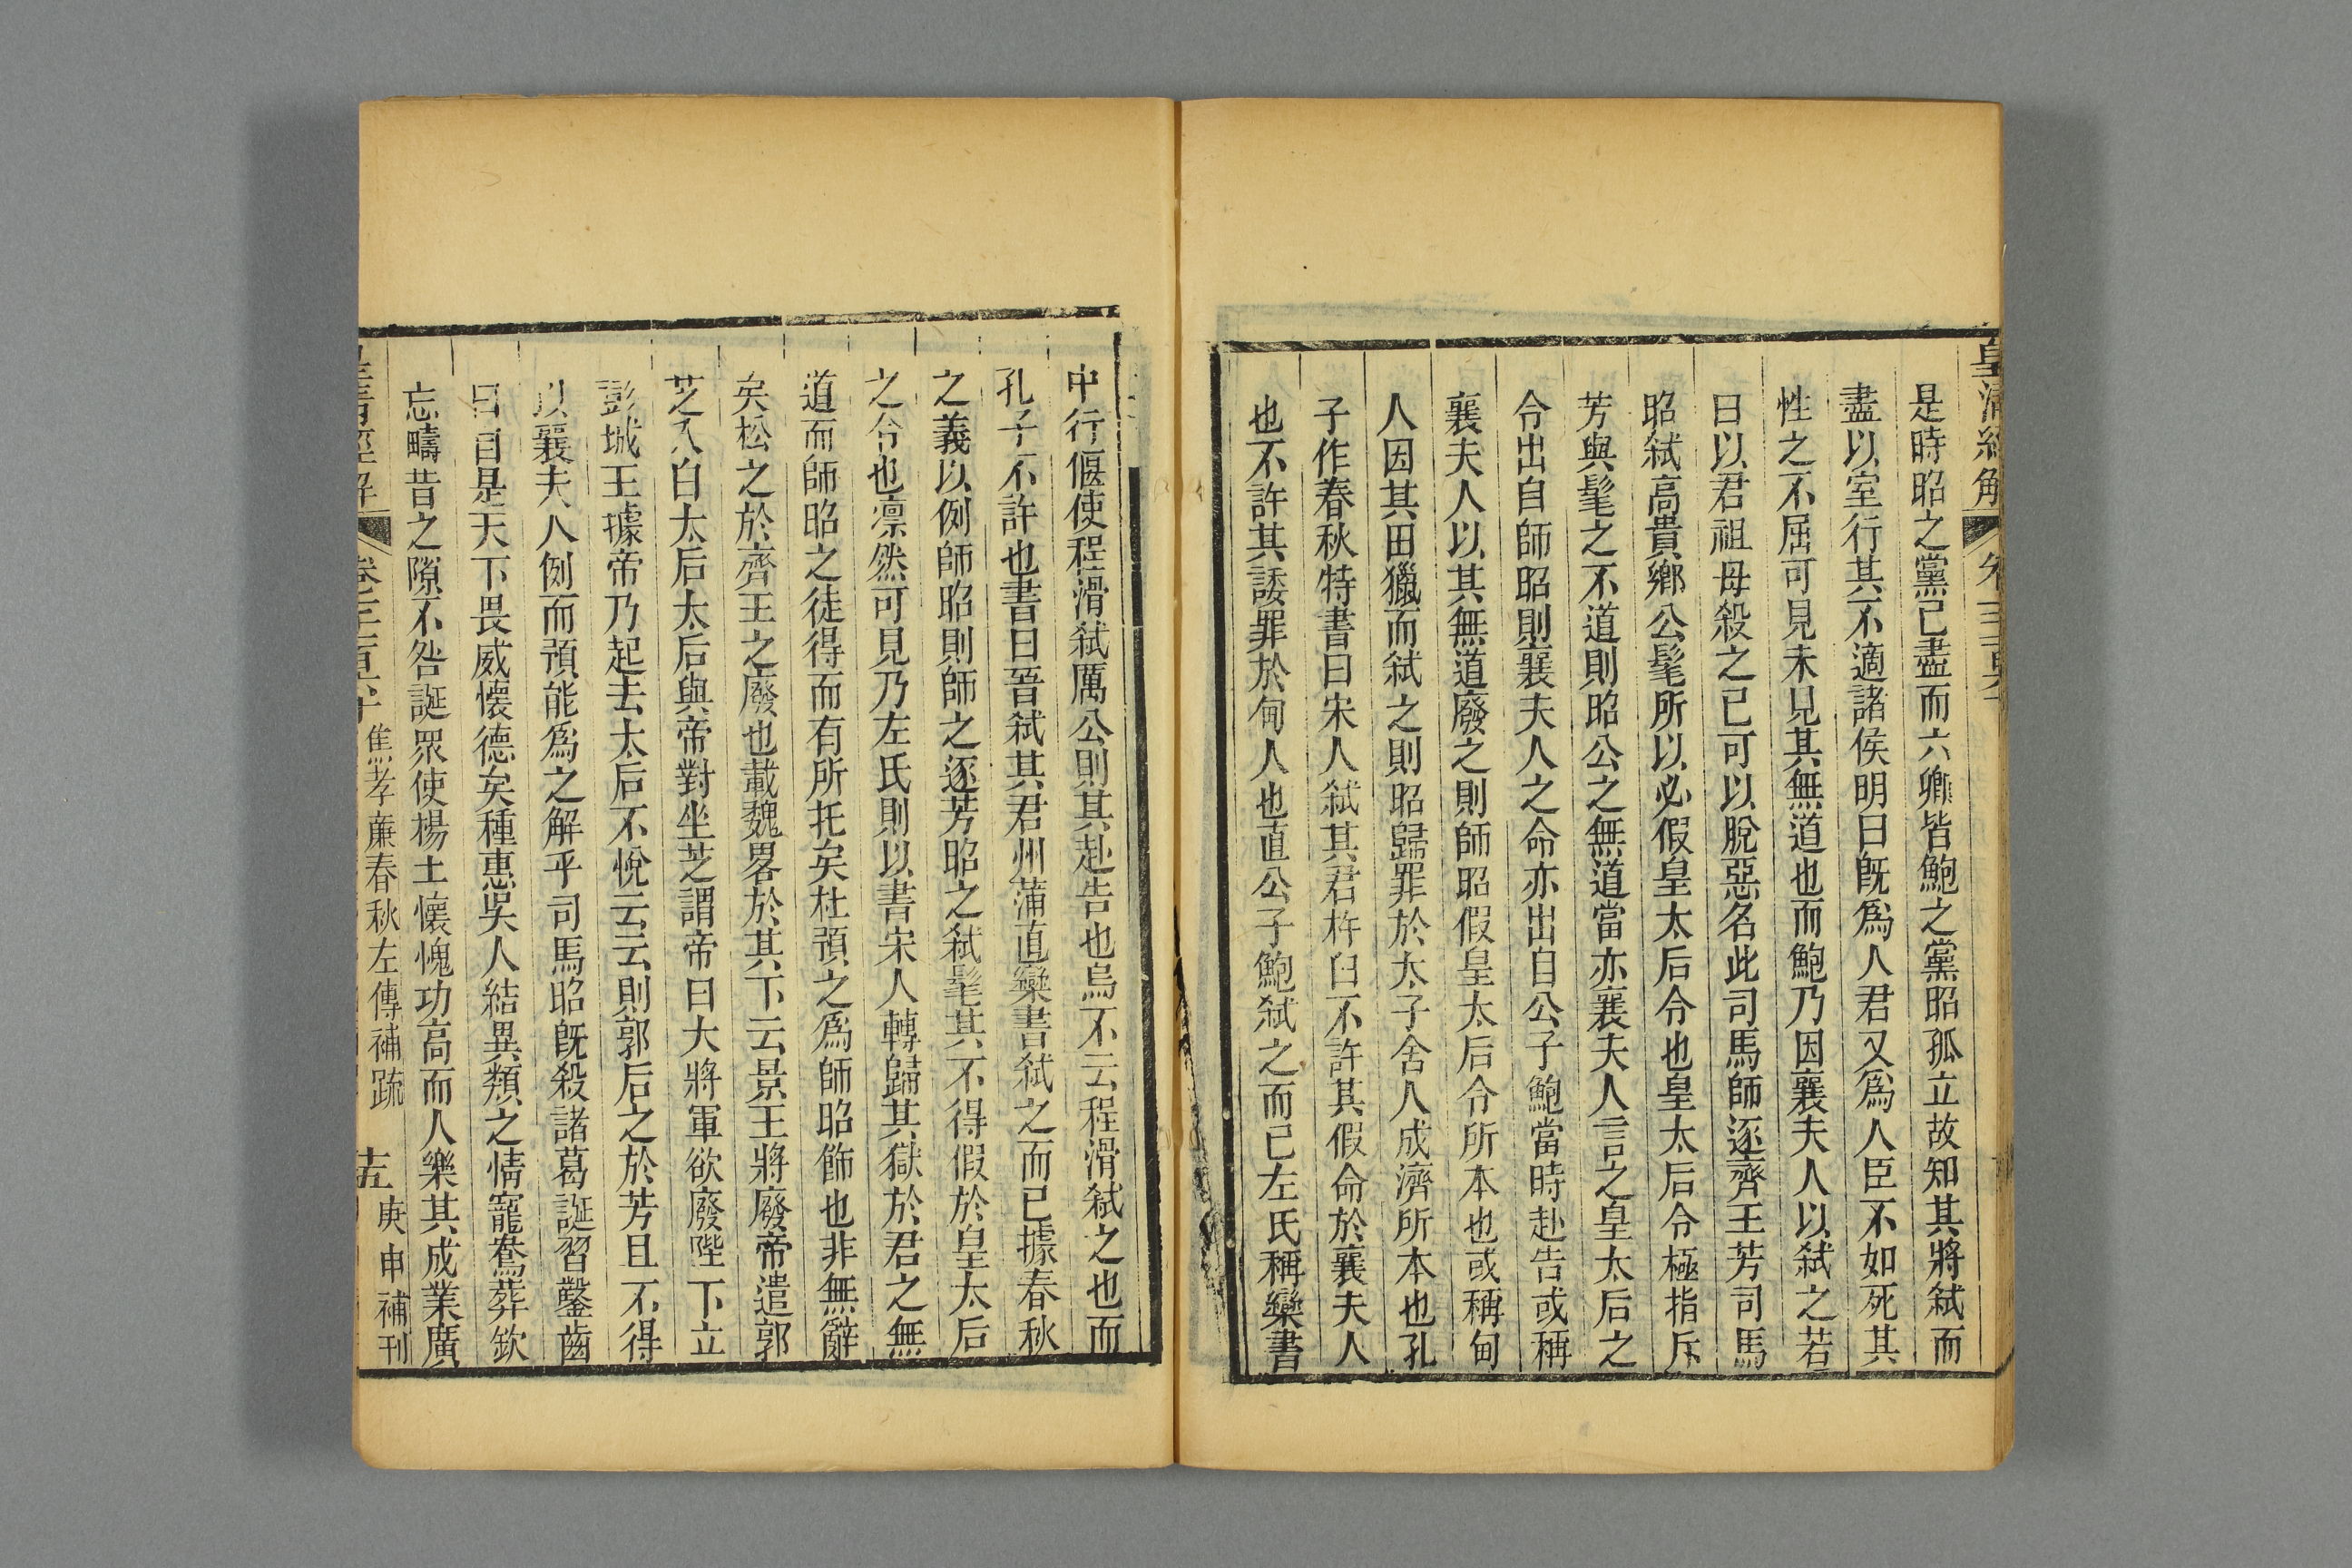 皇清經解
是時昭之黨已盡而六卿皆鮑之黨昭孤立故知其將弒而
盡以室行其不適諸侯明曰旣爲人君又爲人臣不如死其
性之不屈可見未見其無道也而鮑乃因襄夫人以弒之若
曰以君祖母殺之已可以脫惡名此司馬師逐齊王芳司馬
昭弒高貴鄉公髦所以必假皇太后令也皇太后令極指斥
芳與髦之不道則昭公之無道當亦襄夫人言之皇太后之
令出自師昭則襄夫人之命亦出自公子鮑當時赴告或稱
襄夫人以其無道廢之則師昭假皇太后令所本也或稱甸
人因其田獵而弒之則昭歸罪於太子舍人成濟所本也孔
子作春秋特書曰宋人弒其君杵臼不許其假命於襄夫人
也不許其諉罪於甸人也直公子鮑弒之而已左氏稱欒書
中行偃使程滑弒厲公則其赴告也烏不云程滑弒之也而
孔子不許也書曰晉弒其君州蒲直欒書弒之而已據春秋
之義以例師昭則師之逐芳昭之弒髦其不得假於皇太后
之令也凛然可見乃左氏則以書宋人轉歸其獄於君之無
道而師昭之徒得而有所托矣杜預之爲師昭飾也非無辭
矣松之於齊王之廢也載魏畧於其下云景王將廢帝遣郭
芝入白太后太后與帝對坐芝謂帝曰大將軍欲廢陛下立
彭城王據帝乃起去太后不悅云云則郭后之於芳且不得
以襄夫人例而預能爲之解乎司馬昭旣殺諸葛誕習鑿齒
曰自是天下畏威懷德矣種惠吳人結異類之情寵鴦葬欽
忘疇昔之隙不咎誕眾使楊土懷愧功高而人樂其成業廣
皇清經解 卷千一百六十 焦孝廉春秋左傳補疏 十五 庚申補刊